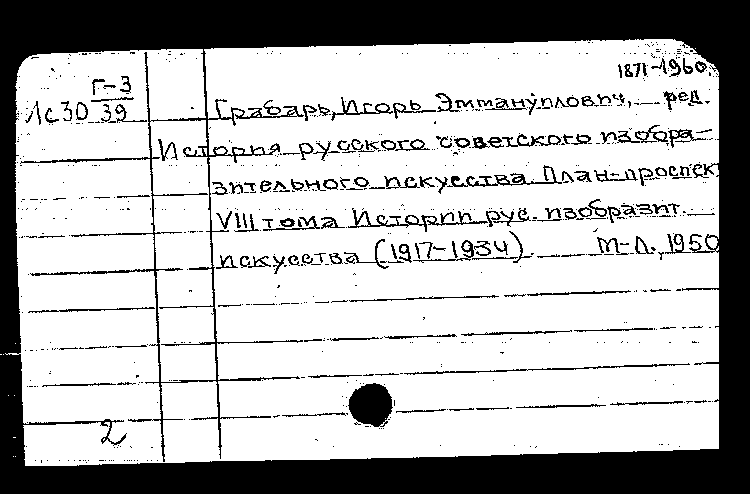 1871-1960.
Г-3
Лс30 39
Грабарь, Игорь Эммануилович, ред.
История русского советского изобра-
зительного искусства. План-проспек
VIII тома Истории рус. изобразит.
искусства (1917-1934). М-Л., 1950
2